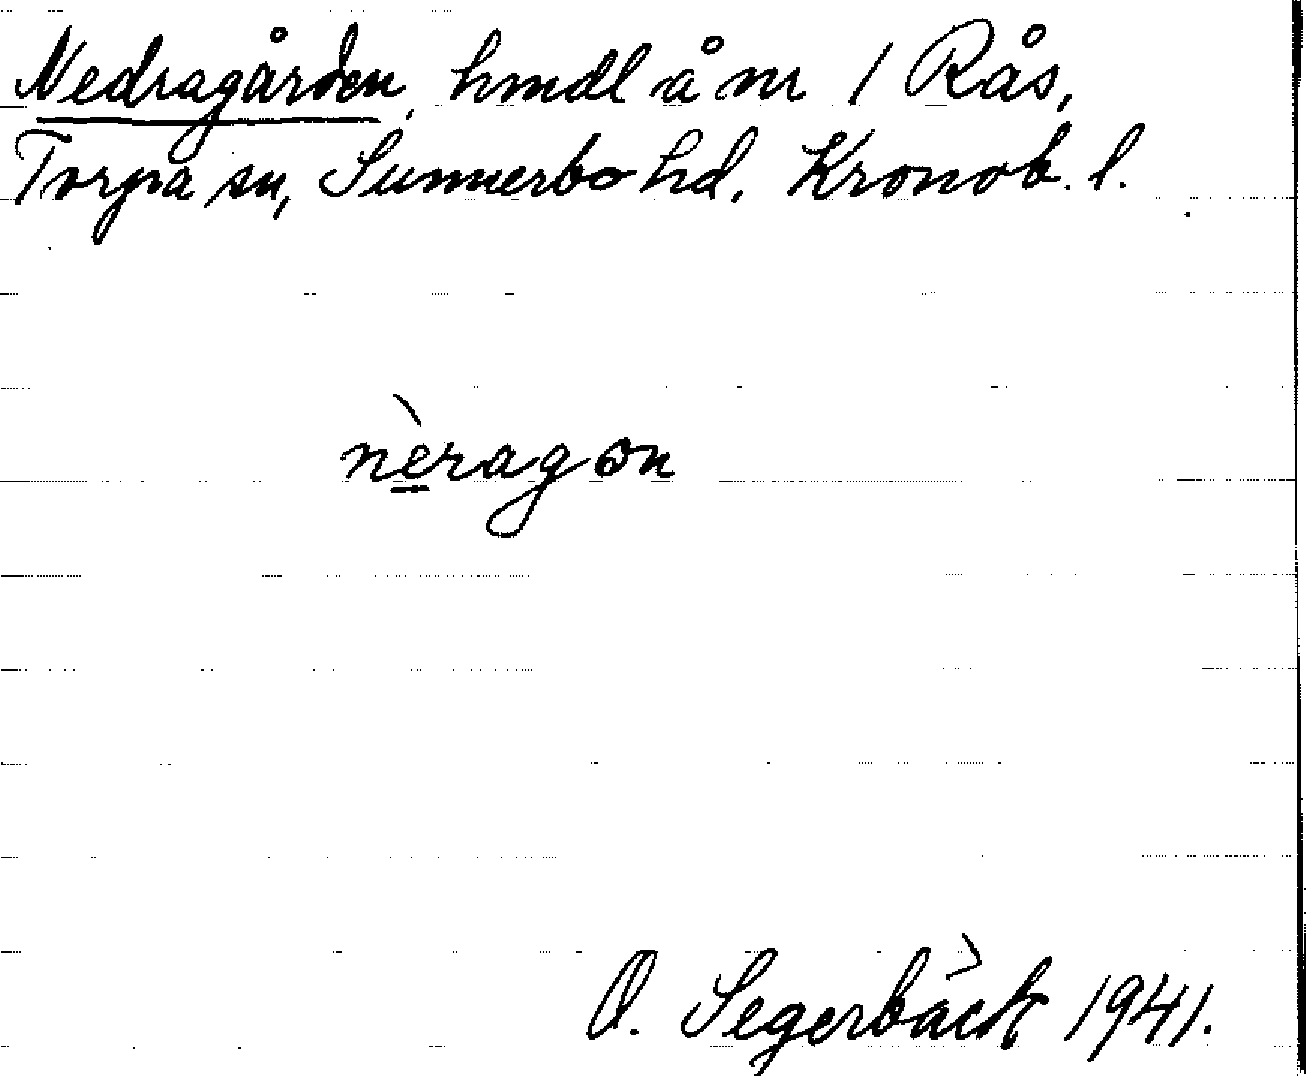 Nedragården, hmdl å nr 1 Rås,
Torpa sn, Sunnerbo hd. Kronob. l.
nèragɔn
O. Segerbäck 1941.